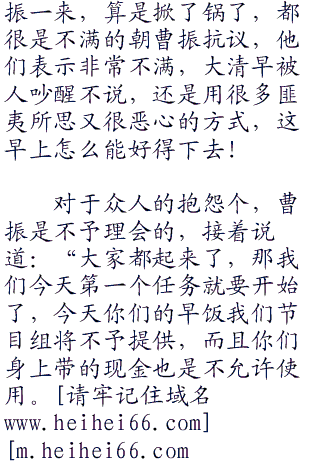 振一来，算是掀了锅了，都
很是不满的朝曹振抗议，他
们表示非常不满，大清早被
人吵醒不说，还是用很多匪
夷所思又很恶心的方式，这
早上怎么能好得下去！
对于众人的抱怨个，曹
振是不予理会的，接着说
道：“大家都起来了，那我
们今天第一个任务就要开始
了，今天你们的早饭我们节
目组将不予提供，而且你们
身上带的现金也是不允许使
用。[请牢记住域名
www.heihei66.com]
[m.heihei66.com